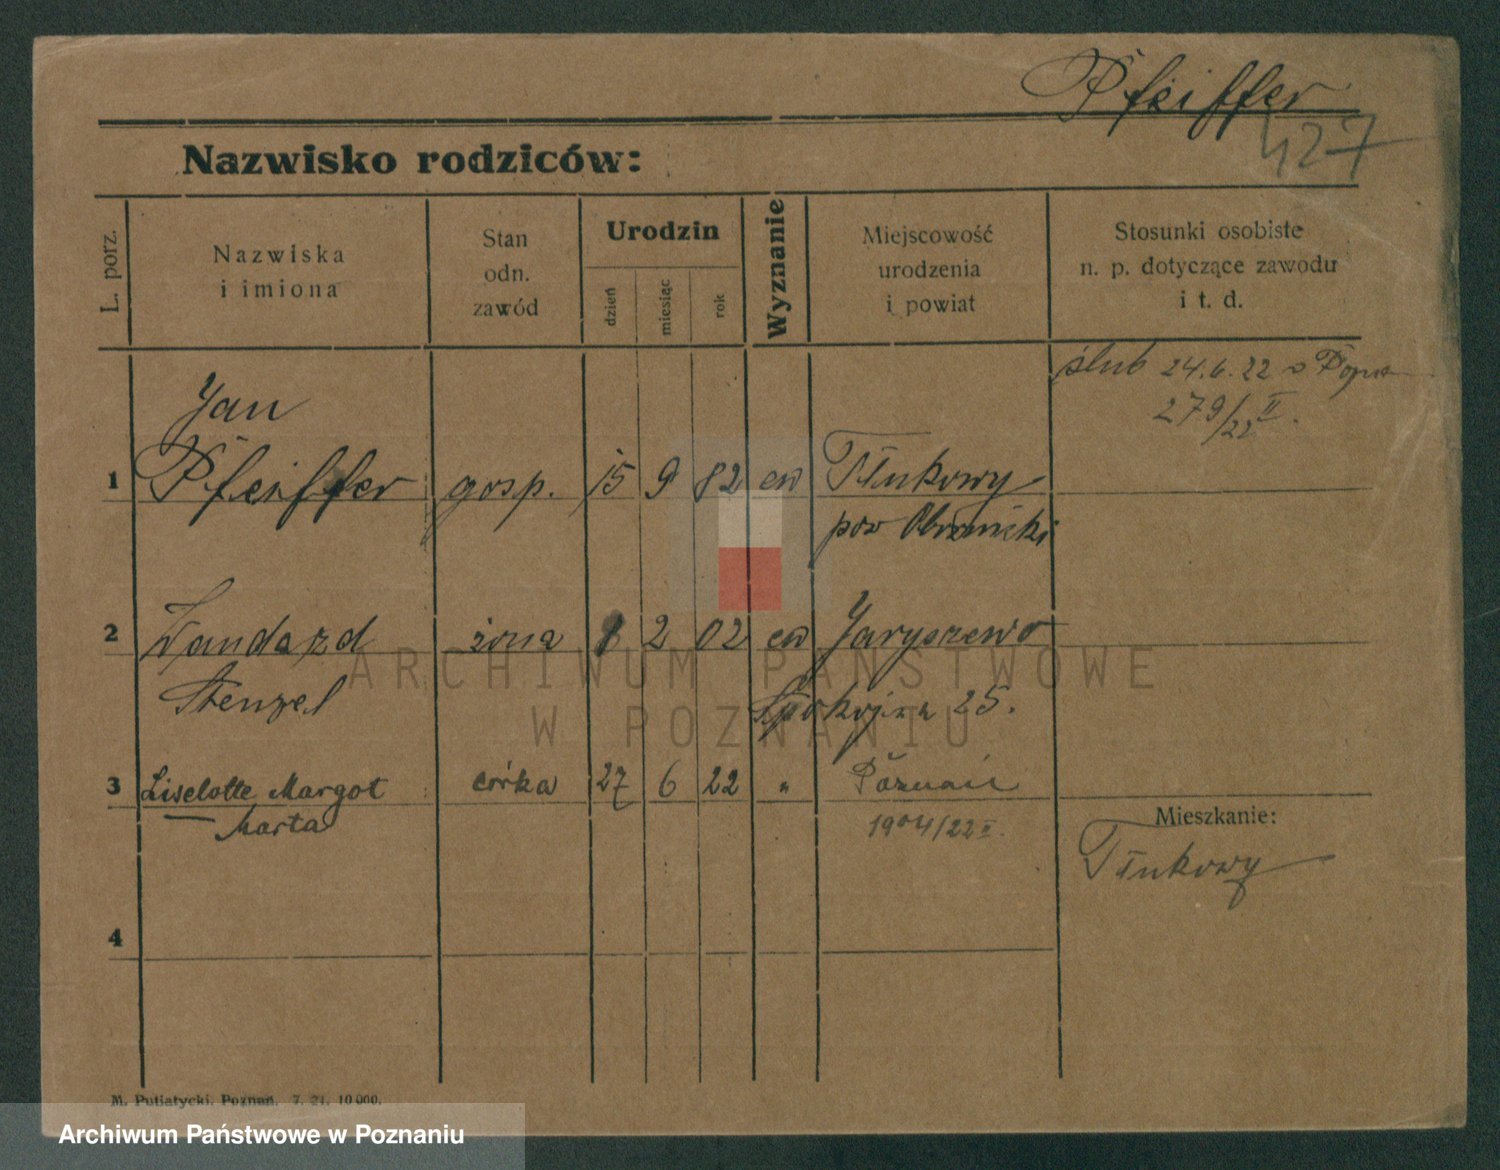 Pfeiffer
427
Nazwisko rodziców:
L. porz.
Nazwiska
i imiona
Stan
odn.
zawód
Urodzin
dzień
miesiąc
rok
Wyznanie
Miejscowość
urodzenia
i powiat
Stosunki osobiste
n. p. dotyczące zawodu
i t. d.
ślub 24.6.22
279/22 II.
Jan
1 Pfeiffer gosp. 15 9 82 ew Tłukowy
pow Obrornicki
2 żona 8 2 02 ew Jaryszewo
Stenzel Spokojna 25.
3 Liselotte Margot córka 27 6 22 " Poznań
Marta 1904/22 II.
Mieszkanie:
Tłukowy
4
M. Putiatycki, Poznań. 7. 21. 10 000.
ARCHIWUM PAŃSTWOWE
W POZNANIU
Archiwum Państwowe w Poznaniu